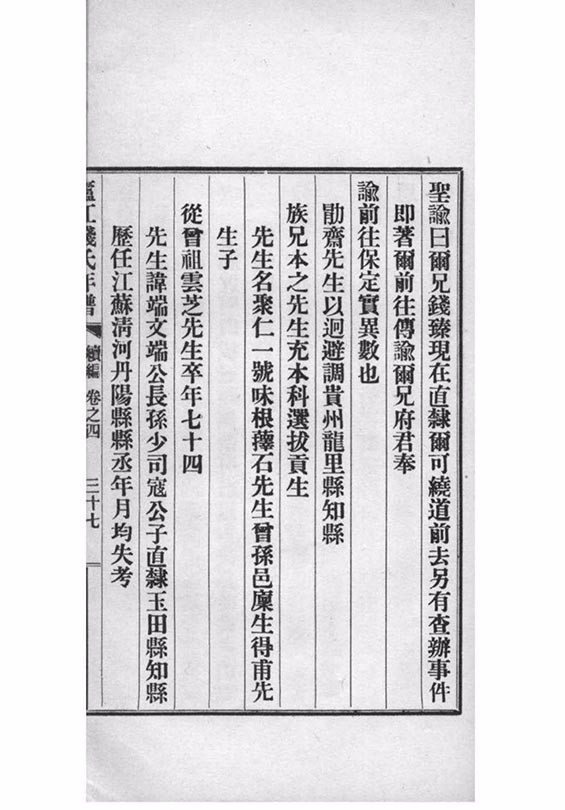 聖諭曰爾兄錢臻現在直隸爾可繞道前去另有查辦事件
即著爾前往傳諭爾兄府君奉
諭前往保定實異數也
勖齋先生以迴避調貴州龍里縣知縣
族兄本之先生充本科選拔貢生
先生名聚仁一號味根蘀石先生曾孫邑廩生得甫先
生子
從曾祖雲芝先生卒年七十四
先生諱端文端公長孫少司寇公子直隸玉田縣知縣
歷任江蘇清河丹陽縣縣丞年月均失考
廬江錢氏年譜 續編 卷之四 三十七